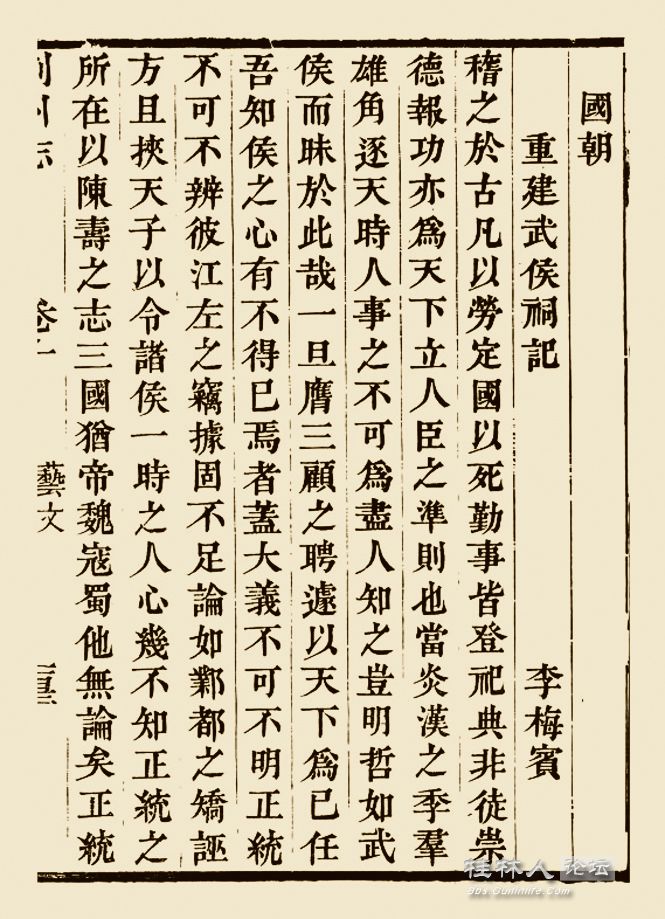 國朝
重建武侯祠記 李梅賓
稽之於古凡以勞定國以死勤事皆登祀典非徒崇
德報功亦爲天下立人臣之準則也當炎漢之季羣
雄角逐天時人事之不可爲盡人知之豈明哲如武
侯而昧於此哉一旦膺三顧之聘遽以天下爲已任
吾知侯之心有不得巳焉者蓋大義不可不明正統
不可不辨彼江左之竊據固不足論如鄴都之矯誣
方且挾天子以令諸侯一時之人心幾不知正統之
所在以陳壽之志三國猶帝魏寇蜀他無論矣正統
志 卷 藝文
桂林人论坛